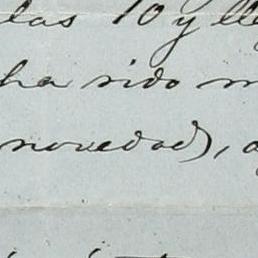 las 10 y lle
ha sido m
novedad, a